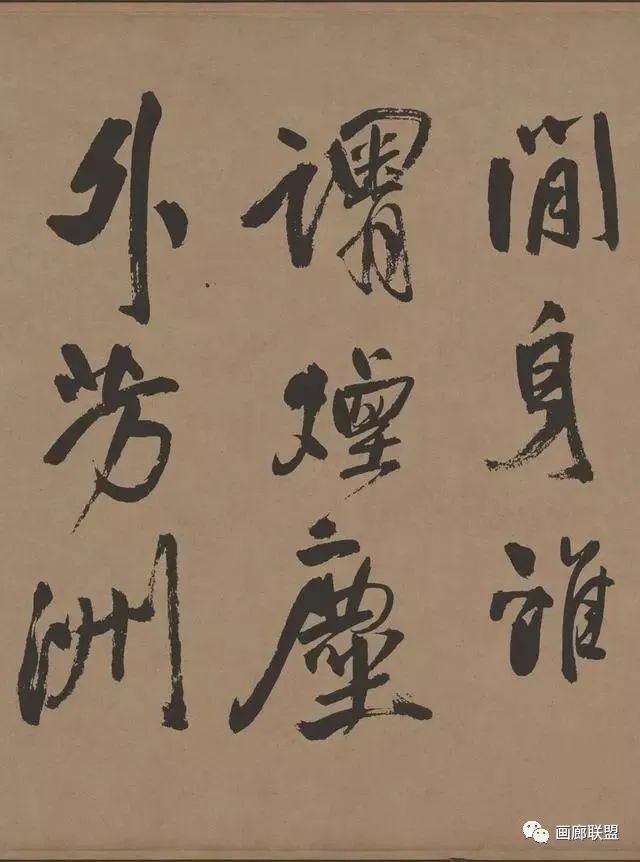 閒身誰
謂煙塵
外芳洲
画廊联盟